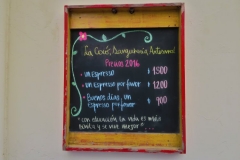 Precios 2016
• un Espresso $1500
• un Espresso por favor $1200
• Buenos días, un
Espresso por favor $900
"con educación la vida es más
bonita y se vive mejor"